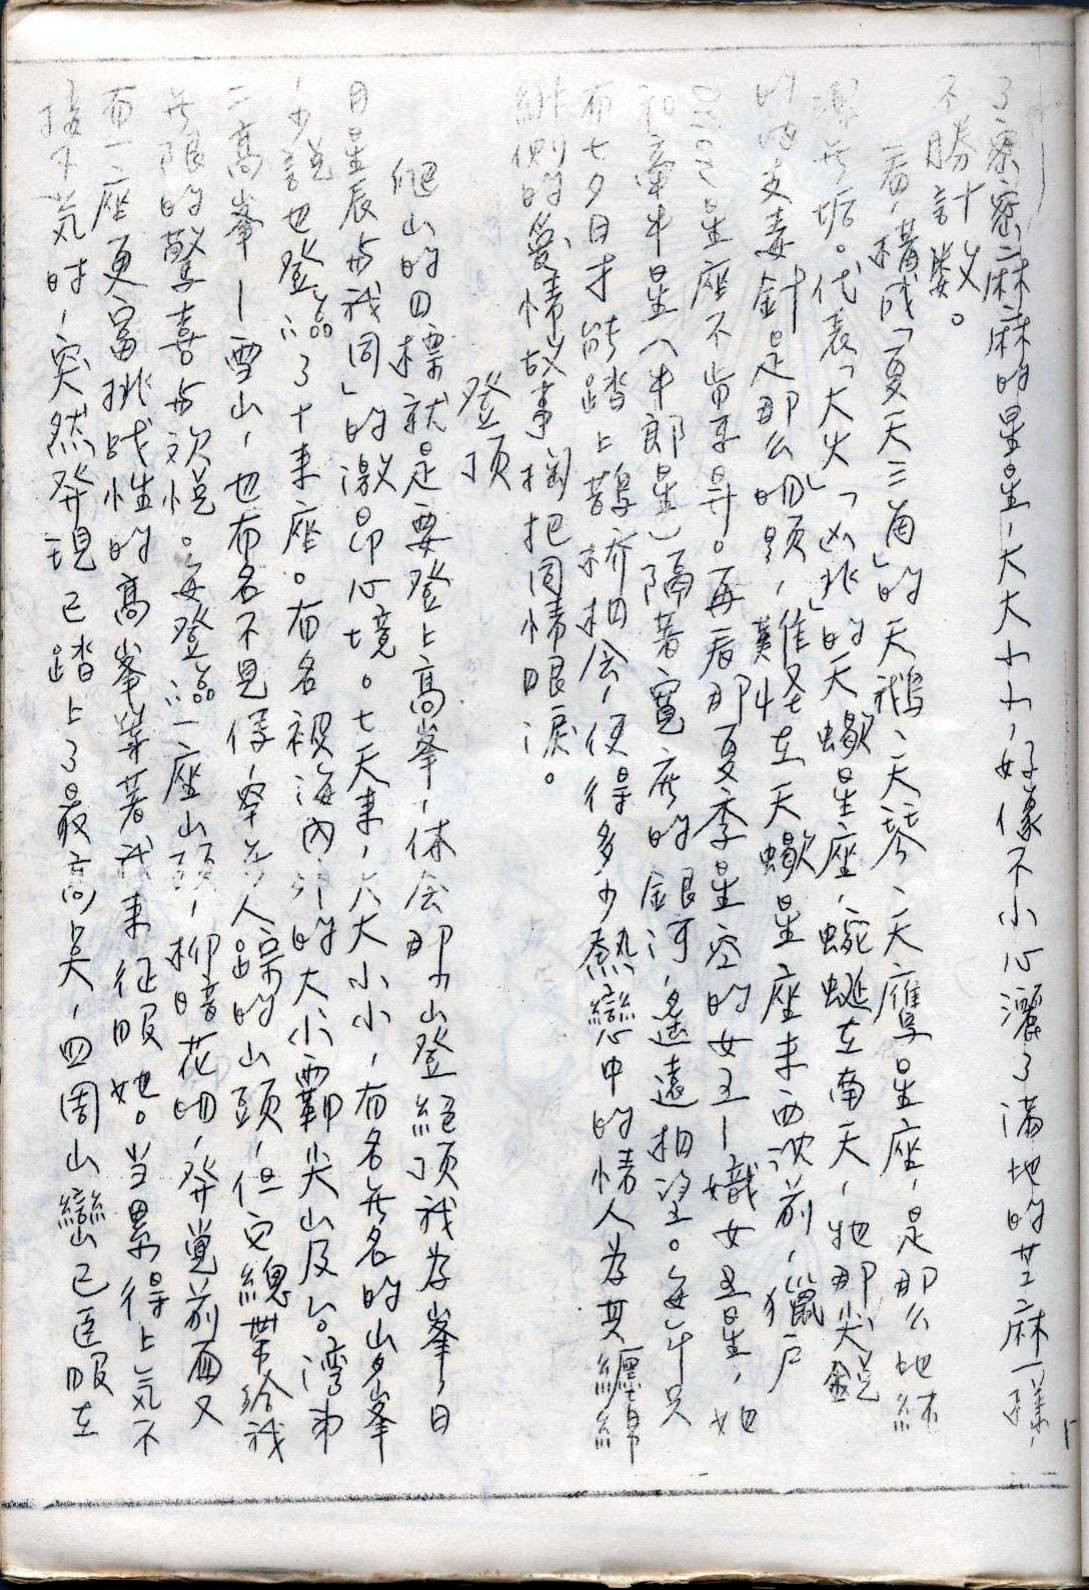 了密密麻麻的星星，大大小小，好像不小心灑了滿地的芝麻一樣，
不勝計數。
看，構成「夏天三角」的天鵝、天琴、天鷹星座，是那么地純
潔無垢。代表「大火」「凶兆」的天蠍星座，蜿蜒在南天，牠那尖銳
的尾毒針是那么明顯，難怪在天蠍星座未西沈前，獵戶
星座不肯東昇。再看那夏季星空的女王—織女星，她
和牽牛星（牛郎星）隔著寬广的銀河，遙遠相望。每年只
有七夕日才能踏上鵲桥相会，使得多少熱戀中的情人為其纏綿
悱惻的愛情故事掬把同情眼淚。
登頂
爬山的目標就是要登上高峯，体会那「山登絕頂我為峯，日
月星辰与我同」的激昂心境。七天來，大大小小，有名無名的山峯
少說也登臨了十來座。有名被海內外的大小霸尖山及台湾第
二高峯—雪山，也有名不見經傳，罕為人跡的山頭，但它總帶給我
無限的驚喜与欢悅。每登臨一座山頭，柳暗花明，發覺前面又
有一座更富挑战性的高峯等著我來征服她。当累得上氣不
接下気时，突然發現已踏上了最高点，四周山巒已臣服在